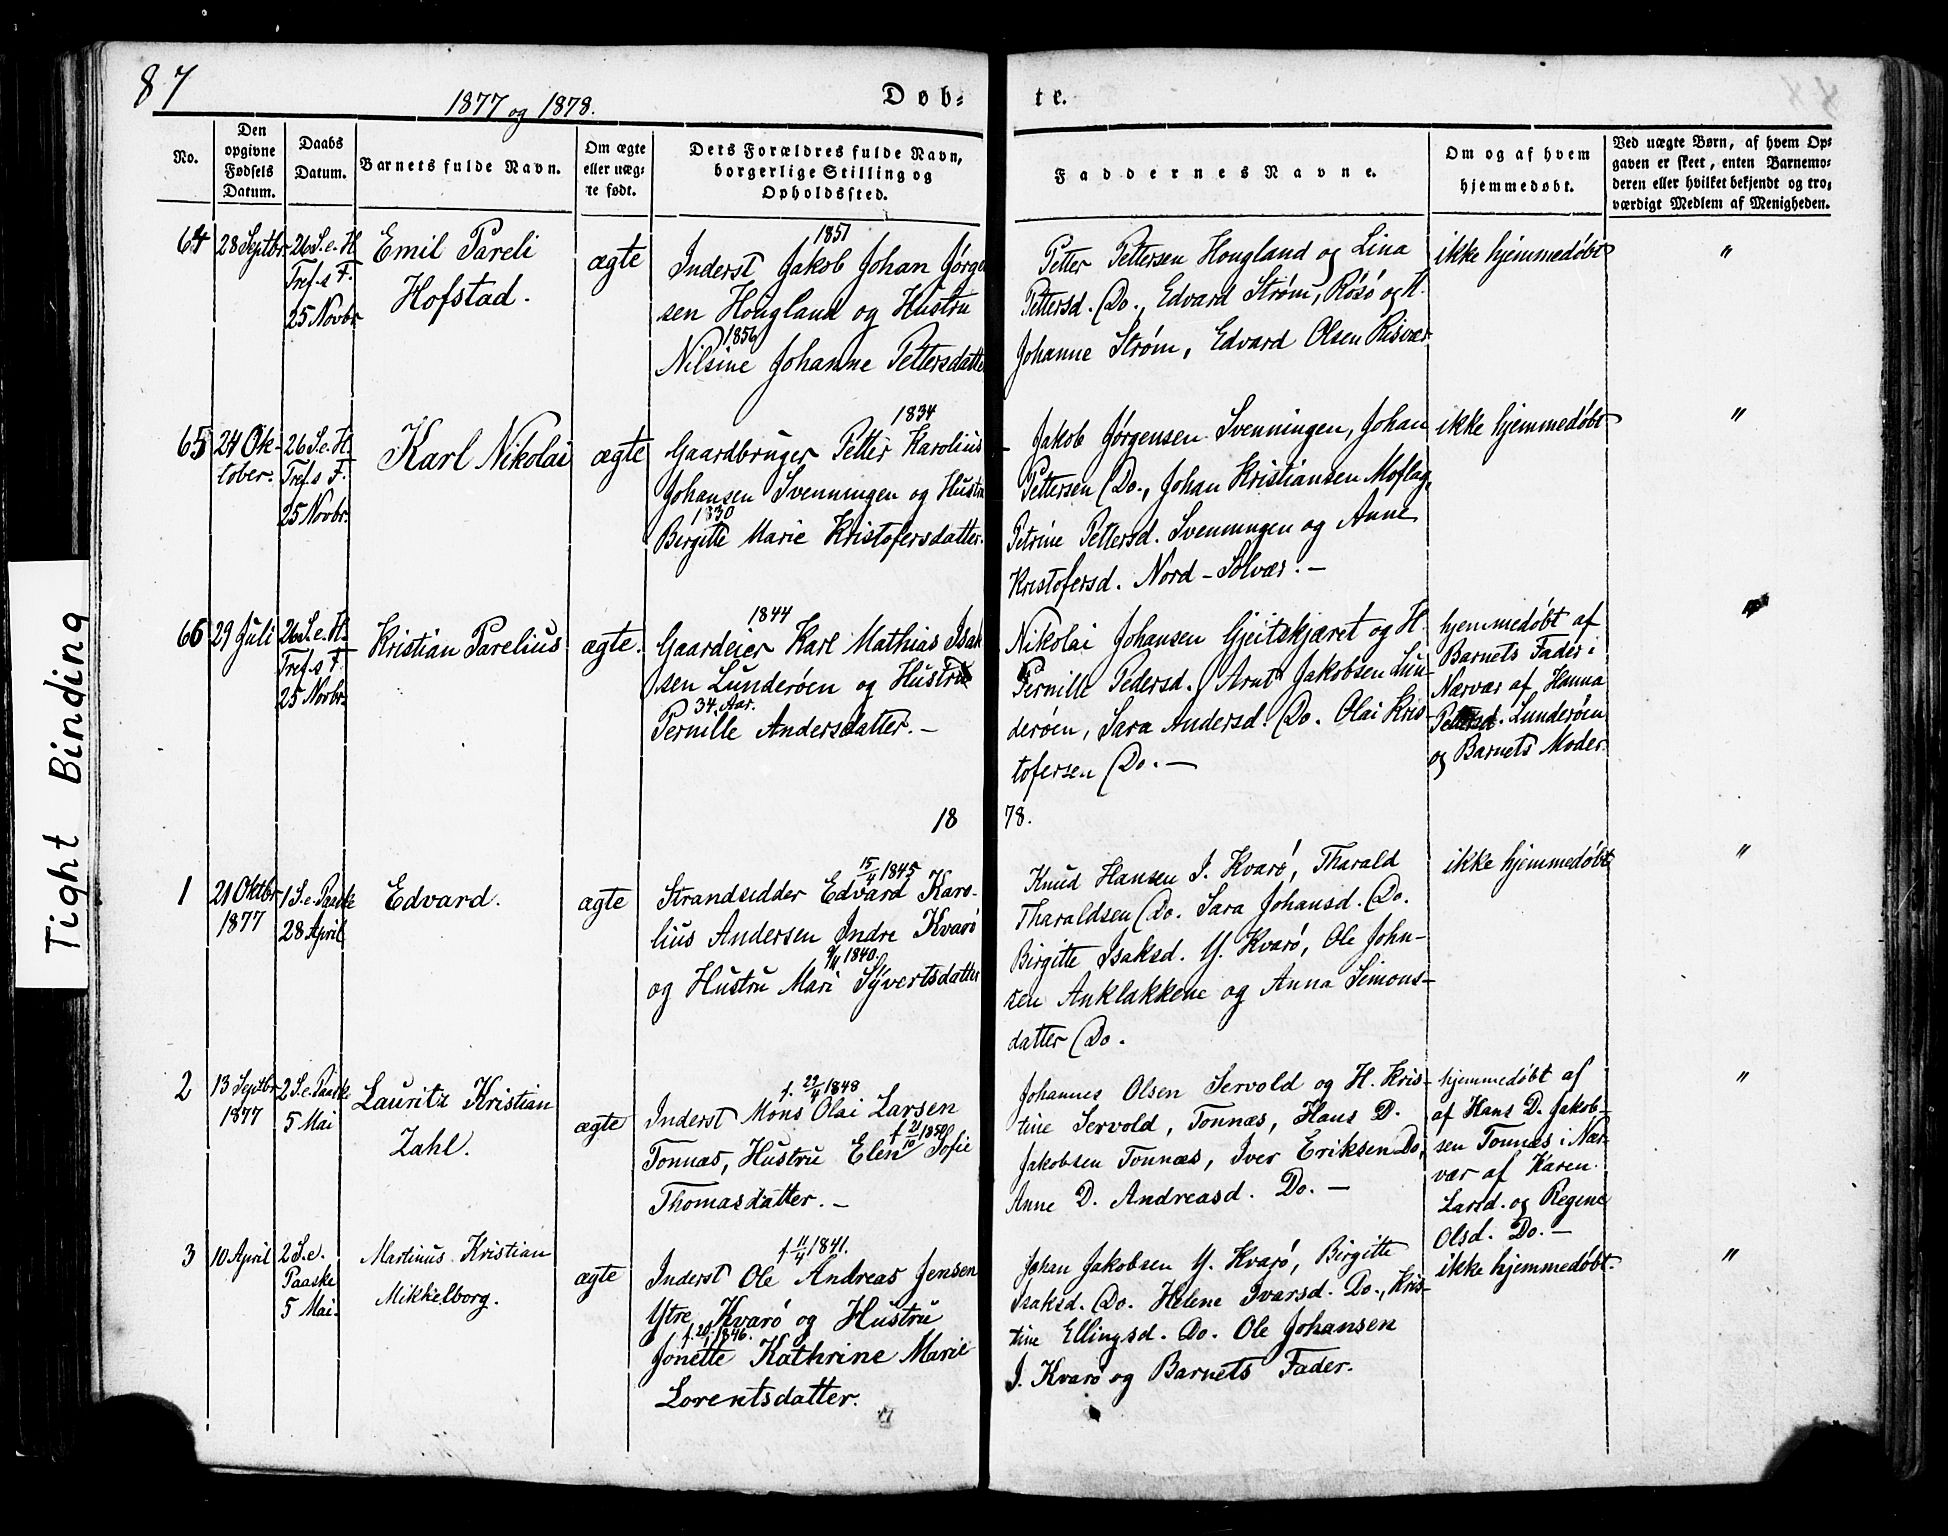 87
1877 og 1878.
Døb-
te.
No.
Den
opgivne
Fødsels
Datum.
Daabs
Datum.
Barnets fulde Navn.
Om ægte
eller uæg-
te født.
Dets Forældres fulde Navn,
borgerlige Stilling og
Opholdssted.
Faddernes Navne.
Om og af hvem
hjemmedøbt.
Ved uægte Børn, af hvem Op-
gaven er skeet, enten Barnemo-
deren eller hvilket bekjendt og tro-
værdigt Medlem af Menigheden.
64
28 Septbr.
26 S. e. H.
Tref.s F.
25 Novbr
Emil Pareli
Hofstad.
ægte
1851
Inderst Jakob Johan Jørgen
sen Hougland og Hustru
1856
Nilsine Johanne Pettersdatter
Petter Pettersen Hougland og Lina
Pettersd. Do., Edvard Strøm, Røsø og H.
Johanne Strøm, Edvard Olsen Risvær
ikke hjemmedøbt
"
65
24 Ok-
tober.
26 S. e. H.
Tref.s F.
25 Novbr.
Karl Nikolai
ægte
1834
Gaardbruger Petter Karolius
Johansen Svenningen og Hustru
1830
Birgitte Marie Kristofersdatter.
Jakob Jørgensen Svenningen, Johan
Pettersen Do., Johan Kristiansen Moflag,
Petrine Pettersd. Svenningen og Anne
Kristofersd. Nord-Solvær. –
ikke hjemmedøbt
"
66
29 Juli
26 S. e. H.
Tref.s F.
25 Novbr.
Kristian Parelius
ægte.
1844
Gaardeier Karl Mathias Isak
sen Lunderøen og Hustru
34 Aar.
Pernille Andersdatter. –
Nikolai Johansen Gjeitskjæret og H.
Pernille Pedersd. Arnt Jakobsen Lun-
derøen, Sara Andersd. Do. Olai Kris-
tofersen Do. –
hjemmedøbt af
Barnets Fader i
Nærvær af Hanna
Pettersd. Lunderøen
og Barnets Moder.
18
78.
1
21 Oktbr
1877
1 S. e. Paaske
28 April
Edvard.
ægte
15/4 1845
Strandsidder Edvard Karo-
lius Andersen Indre Kvarø
9/11 1840.
og Hustru Mari Syvertsdatter
Knud Hansen I. Kvarø, Tharald
Tharaldsen Do. Sara Johansd. Do.
Birgitte Isaksd. Y. Kvarø, Ole John-
sen Anklakkene og Anna Simons-
datter Do.
ikke hjemmedøbt
"
2
13 Septbr
1877
2 S. e. Paaske
5 Mai
Lauritz Kristian
Zahl.
ægte
f. 29/4 1848
Inderst Mons Olai Larsen
f 21/10 1850
Tonnæs, Hustru Elen Sofie
Thomasdatter. –
Johannes Olsen Servold og H. Kris-
tine Servold, Tonnæs, Hans D.
Jakobsen Tonnæs, Iver Eriksen Do,
Anne D. Andreasd. Do. –
hjemmedøbt af
af Hans D. Jakob-
sen Tonnæs i Nær-
vær af Karen
Larsd. og Regine
Olsd. Do. –
"
3
10 April
2 S. e.
Paaske
5 Mai.
Martinus Kristian
Mikkelborg.
ægte
f 11/4 1841.
Inderst Ole Andreas Jensen
Ytre Kvarø og Hustru
1846.
Jonette Kathrine Marie
Lorentsdatter.
Johan Jakobsen Y. Kvarø, Birgitte
Isaksd. Do. Helene Ivarsd. Do., Kris-
tine Ellingsd. Do. Ole Johansen
I. Kvarø og Barnets Fader.
ikke hjemmedøbt.
"
Tight Binding